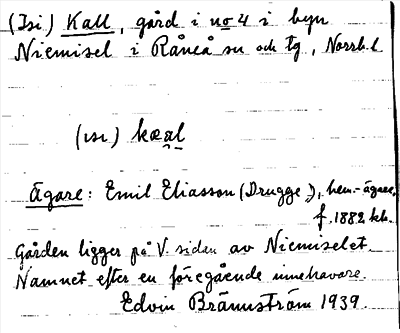 (Isi) Kall, gård i no 4 i byn
Niemisel i Råneå sn och tg, Norrb. l
(ısı) kæal
Ägare: Emil Eliasson (Drugge), hem.-ägare,
f. 1882 kb.
Gården ligger på V. sidan av Niemiselet.
Namnet efter en föregående innehavare.
Edvin Brännström 1939.